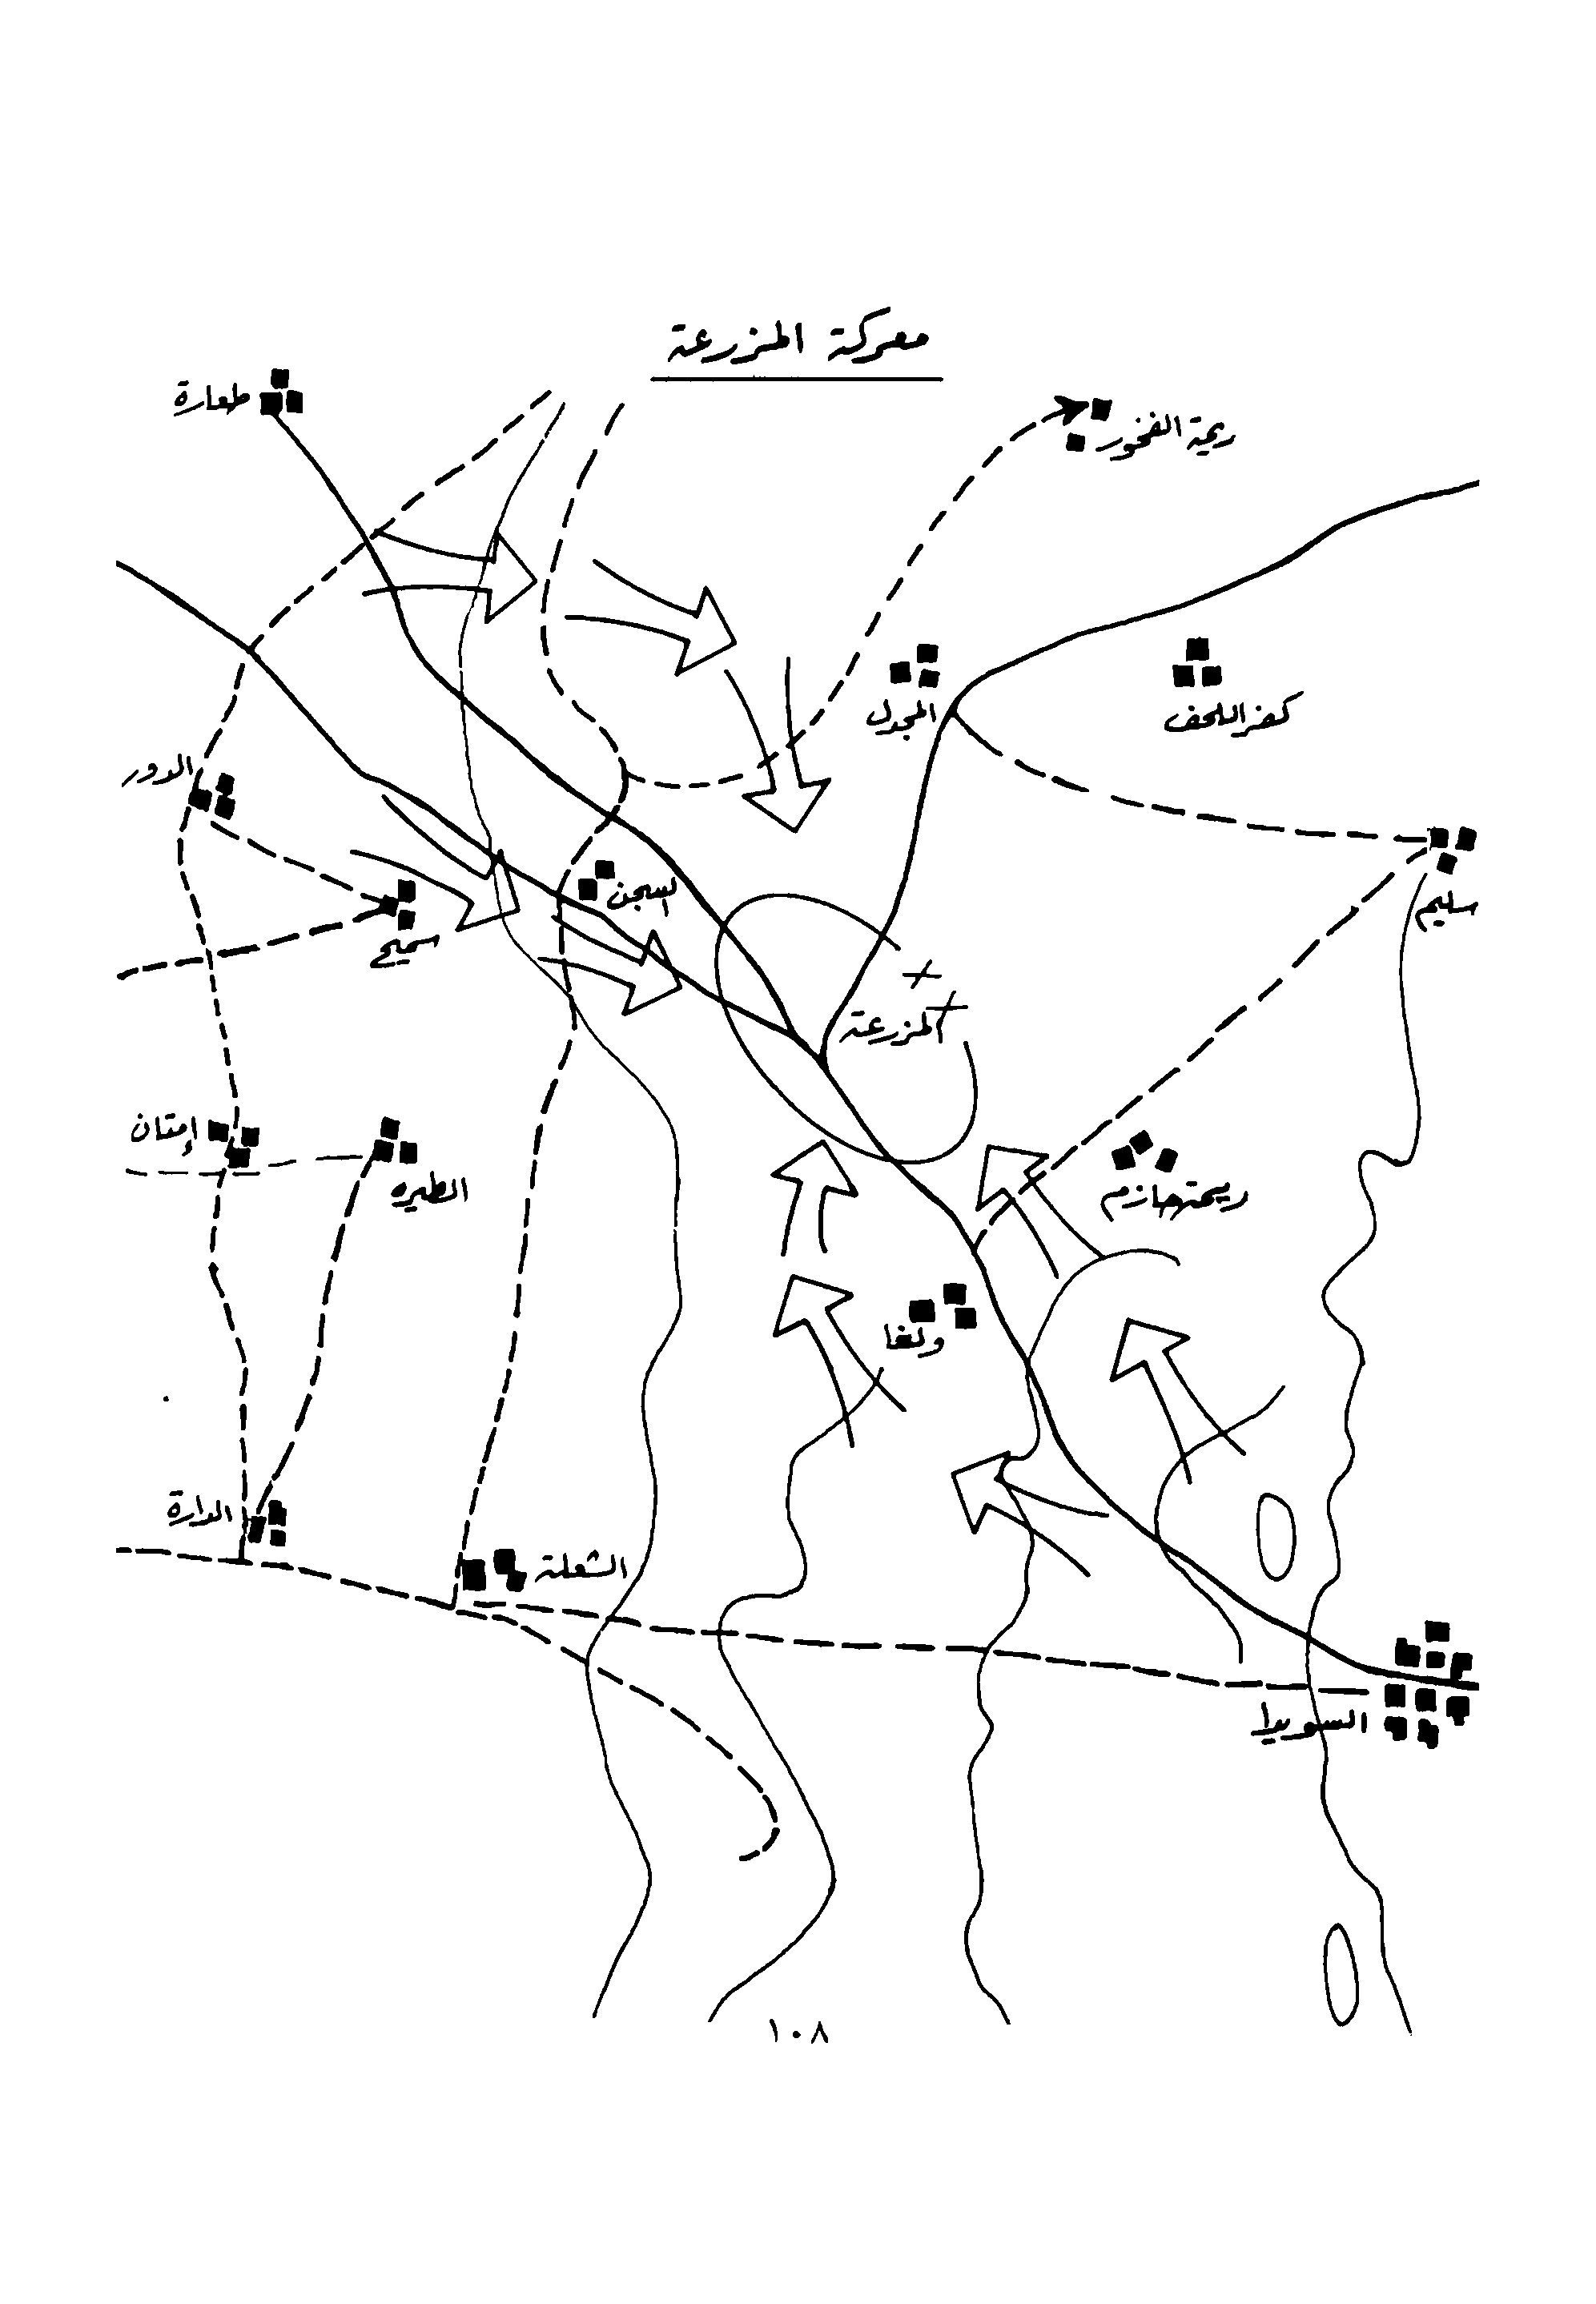 معركة المزرعة
طعارة
ريمة الفخور
المجدل
كفر اللحف
الدور
السجن
سليم
سميح
المزرعة
إمتان
الطيره
ريمة حازم
ولغا
الدارة
الشعلة
السويدا
١٠٨